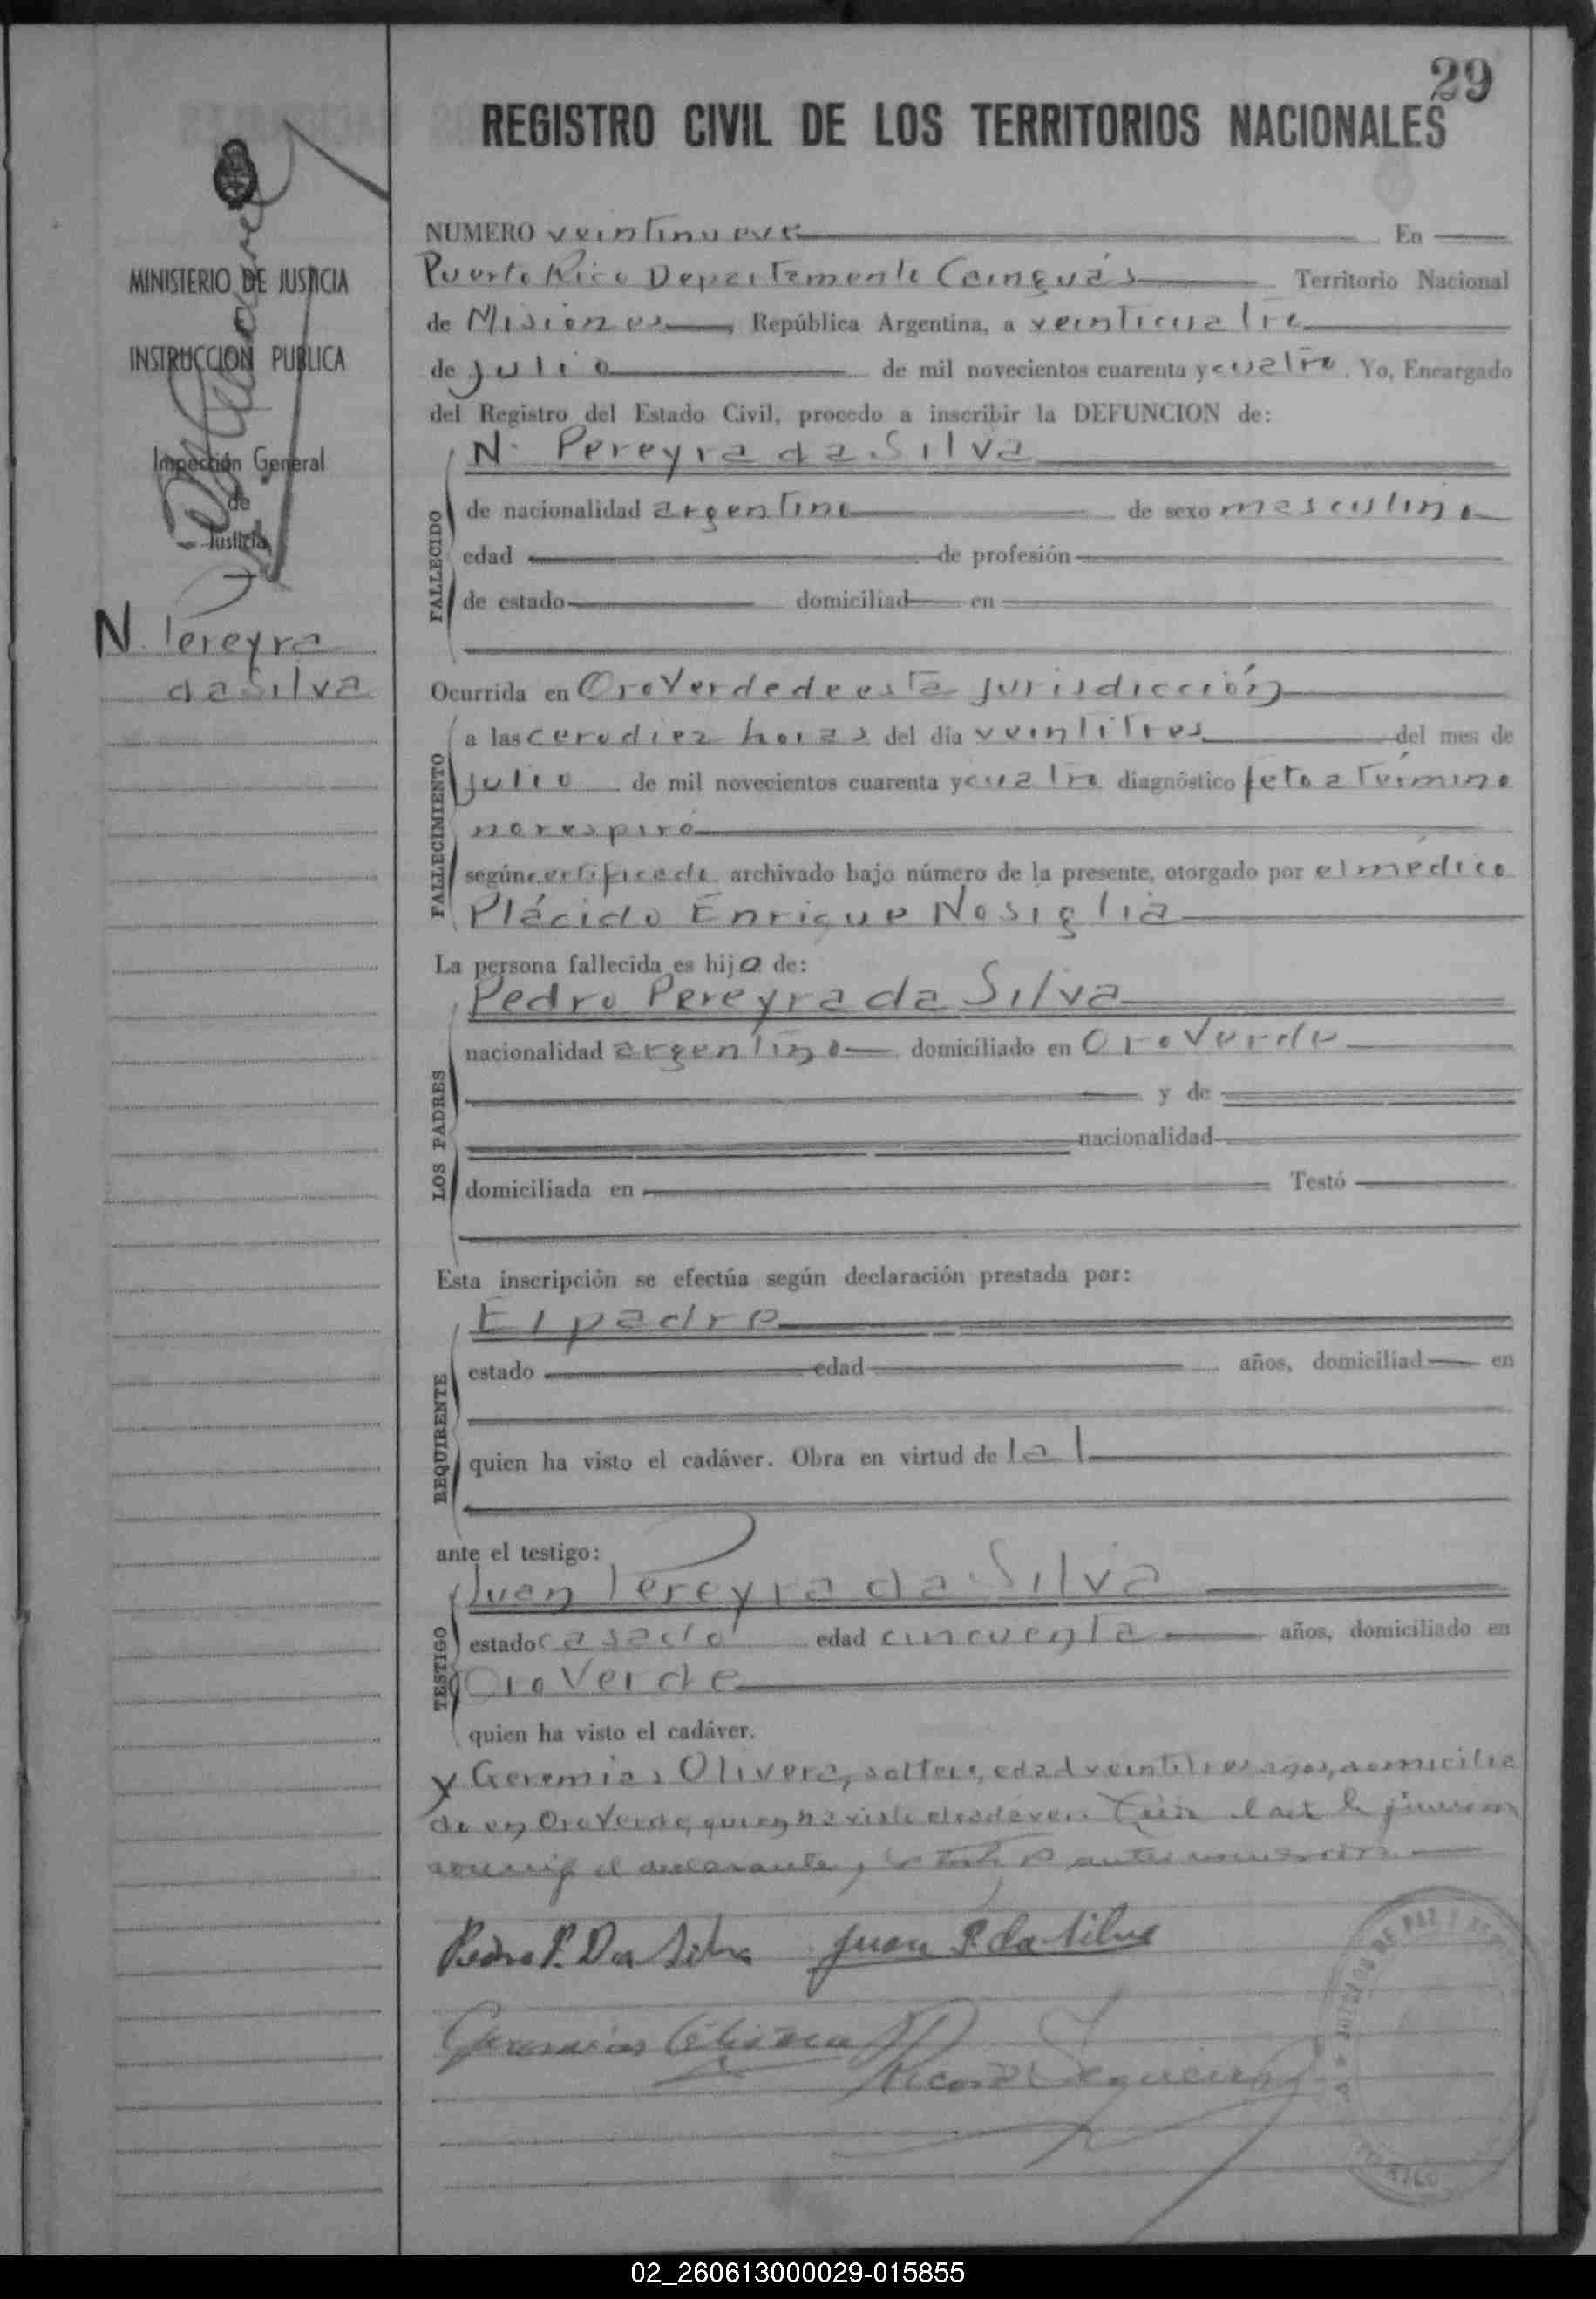 29
REGISTRO CIVIL DE LOS TERRITORIOS NACIONALES
MINISTERIO DE JUSTICIA
INSTRUCCION PUBLICA
Inspección General
de
Justicia
N. Pereyra
da Silva
NUMERO veintinueve En
Puerto Rico Departamento Cainguás Territorio Nacional
de Misiones, República Argentina, a veinticuatro
de julio de mil novecientos cuarenta y cuatro. Yo, Encargado
del Registro del Estado Civil, procedo a inscribir la DEFUNCION de:
FALLECIDO
N. Pereyra da Silva
de nacionalidad argentino de sexo masculino
edad de profesión
de estado domiciliad en
Ocurrida en Oro Verde de esta jurisdicción
FALLECIMIENTO
a las cero diez horas del día veintitres del mes de
julio de mil novecientos cuarenta y cuatro diagnóstico feto a término
no respiró
según certificado archivado bajo número de la presente, otorgado por el médico
Plácido Enrique Nosiglia
La persona fallecida es hijo de:
LOS PADRES
Pedro Pereyra da Silva
nacionalidad argentino domiciliado en Oro Verde
y de
nacionalidad
domiciliada en Testó
Esta inscripción se efectúa según declaración prestada por:
REQUIRENTE
El padre
estado edad años, domiciliad en
quien ha visto el cadáver. Obra en virtud de la l
ante el testigo:
TESTIGO
Juan Pereyra da Silva
estado casado edad cincuenta años, domiciliado en
Oro Verde
quien ha visto el cadáver.
y Geremias Olivera, soltero, edad veintitres años, domicilia
do en Oro Verde, quien ha visto el cadáver. Leida el acta la firmaron
conmigo el declarante y los testigos antes
Pedro P. Da Silva Juan P. da Silva
Geremias Olivera
02_260613000029-015855